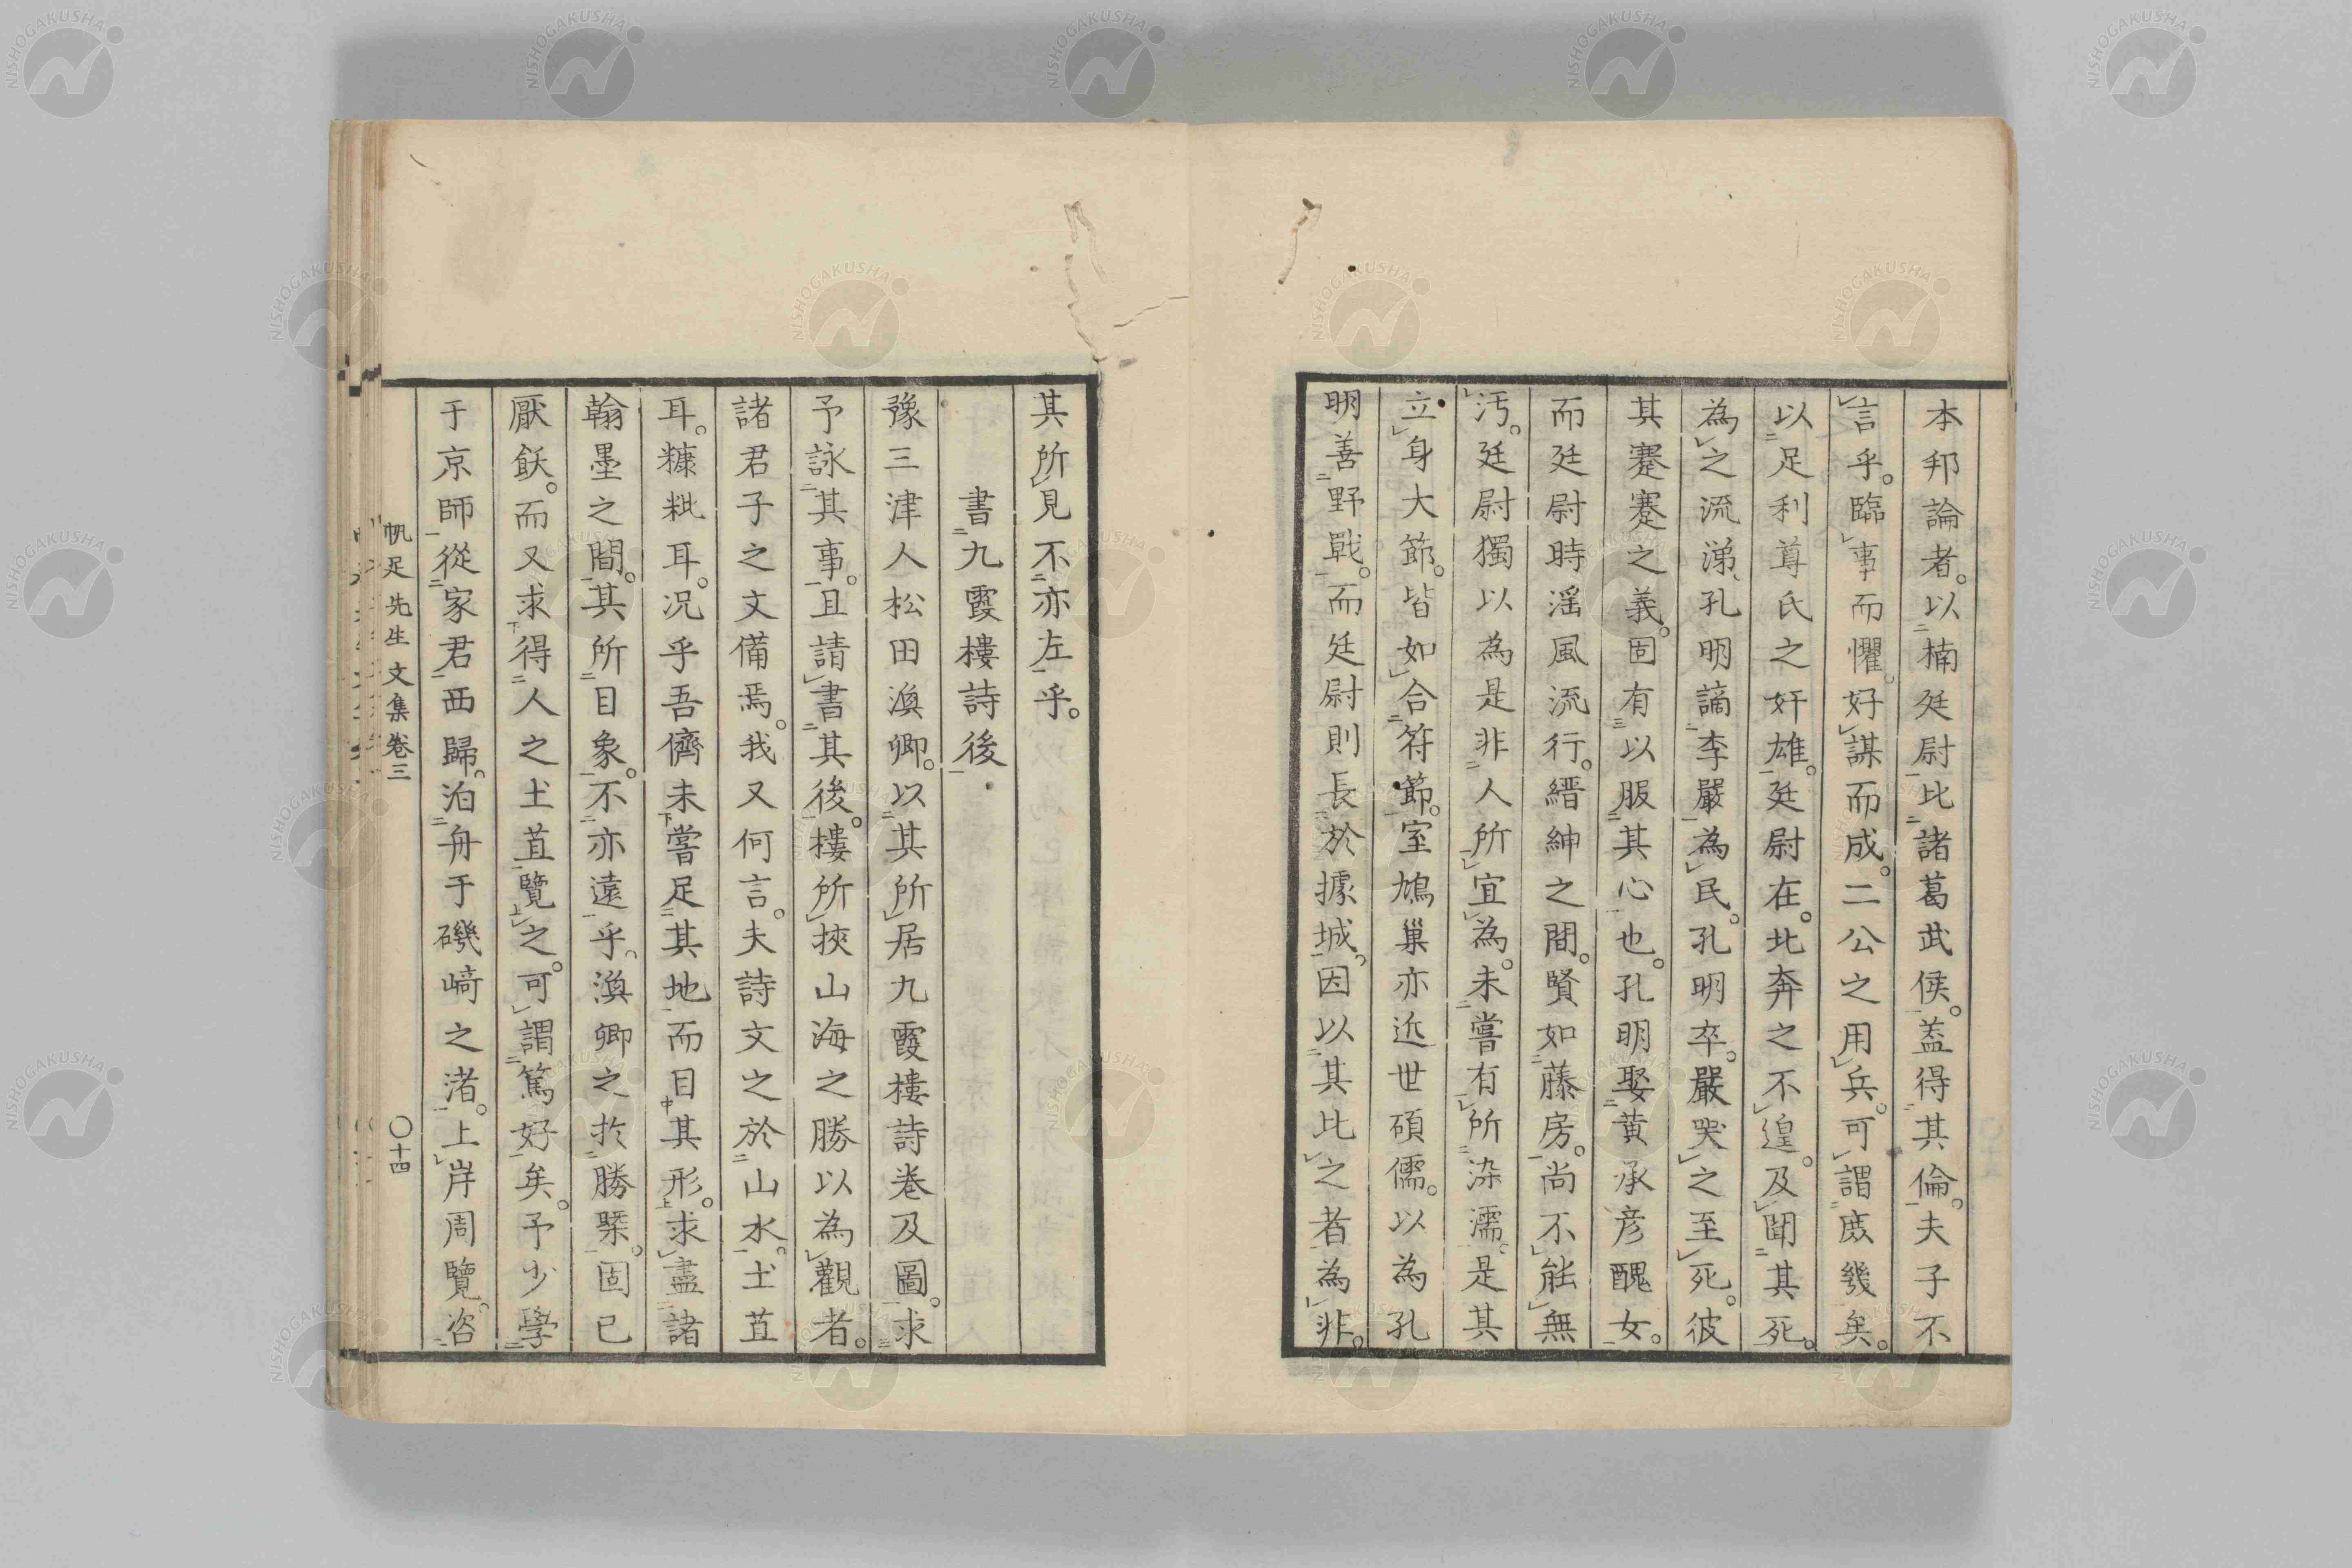 本邦論者。以楠廷尉比諸葛武侯。蓋得其倫。夫子不
言乎。臨事而懼。好謀而成。二公之用兵。可謂庶幾矣。
以足利尊氏之奸雄。廷尉在。北奔之不遑。及聞其死。
為之流涕、孔明謫李嚴為民。孔明卒。嚴哭之至死。彼
其蹇蹇之義。固有以服其心也。孔明娶黃承彦醜女。
而廷尉時滛風流行。縉紳之間。賢如藤房。尚不能無
汚。廷尉獨以為是非人所宜為。未嘗有所染濡。是其
立身大節。皆如合符節。室鳩巢亦近世碩儒。以為孔
明善野戰。而廷尉則長於據城。因以其比之者為非。
其所見不亦左乎。
書九霞樓詩後
豫三津人松田渙卿。以其所居九霞樓詩卷及圖。求
予詠其事。且請書其後。樓所挾山海之勝以為觀者。
諸君子之文備焉。我又何言。夫詩文之於山水。土苴
耳。糠粃耳。况乎吾儕未嘗足其地而目其形。求盡諸
翰墨之間。其所目象。不亦遠乎。渙卿之於勝槩。固已
厭飫。而又求得人之土苴覽之。可謂篤好矣。予少學
于京師從家君西歸。泊舟于磯﨑之渚。上岸周覽。咨
帆足先生文集卷三
〇十四
NISHOGAKUSHA